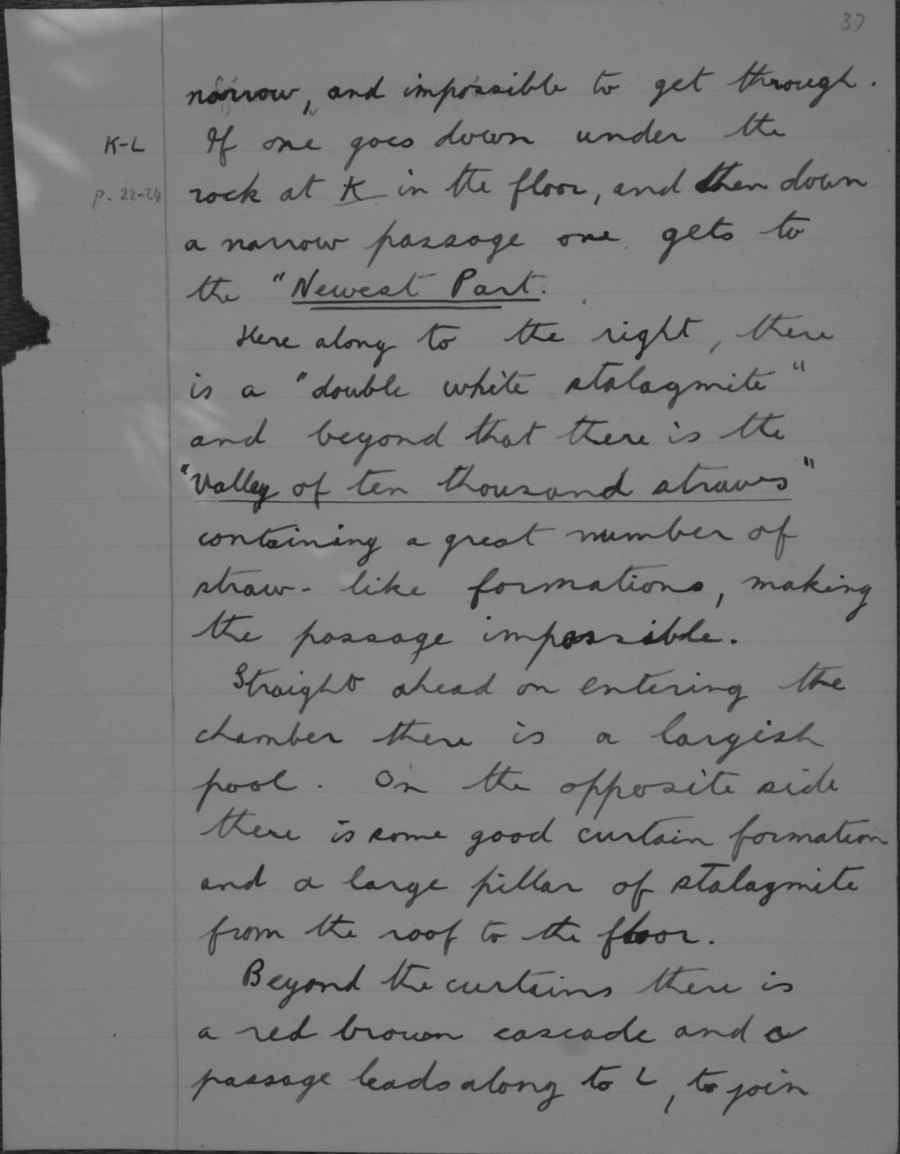 37
narrow, and impossible to get through.
K-L If one goes down under the
p. 22-24 rock at K in the floor, and then down
a narrow passage one gets to
the "Newest Part.
Here along to the right, there
is a "double white stalagmite"
and beyond that there is the
"Valley of ten thousand straws"
containing a great number of
straw-like formations, making
the passage impassible.
Straight ahead on entering the
chamber there is a largish
pool. On the opposite side
there is some good curtain formation
and a large pillar of stalagmite
from the roof to the floor.
Beyond the curtains there is
a red brown cascade and a
passage leads along to L, to join